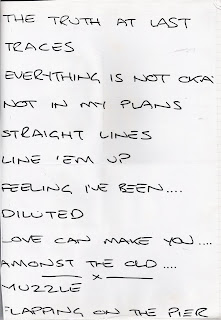 THE TRUTH AT LAST
TRACES
EVERYTHING IS NOT OKA
NOT IN MY PLANS
STRAIGHT LINES
LINE 'EM UP
FEELING I'VE BEEN....
DILUTED
LOVE CAN MAKE YOU....
AMONST THE OLD....
x
MUZZLE
FLAPPING ON THE PIER